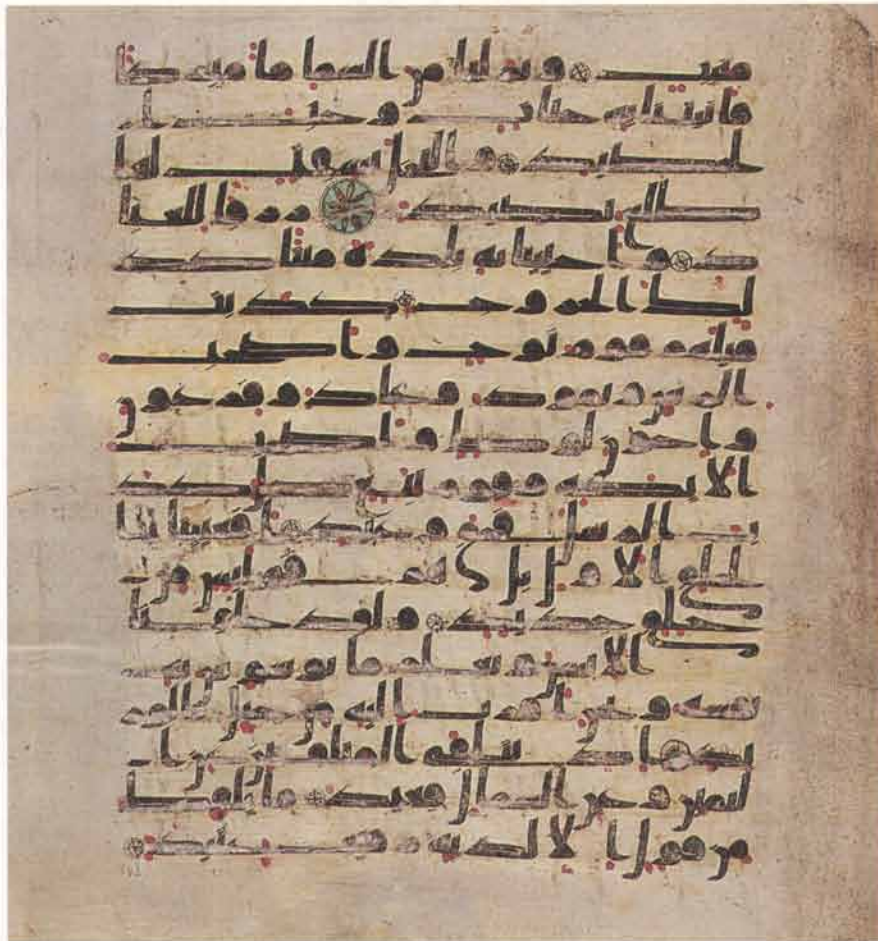 منيب ونزلنا من السما ما مبركا
فانبتنا به جنات وحب ا
لحصيد والنخل بسقت لها
طلع نضيد رزقا للعبا
د واحيينا به بلدة ميتا كذ
لك الخروج كذبت
قبلهم قوم نوح واصحب
الرس وثمود وعاد وفرعون
واخون لوط واصحب
الايكة وقوم تبع كل كذ
ب الرسل فحق وعيد افعيينا با
لخلق الاول بل هم في لبس من
خلق جديد ولقد خلقنا
الانسن ونعلم ما توسوس به
نفسه ونحن اقرب اليه من حبل الور
يد اذ يتلقى المتلقين عن ا
ليمين وعن الشمال قعيد ما يلفظ
من قول الا لديه رقيب عتيد